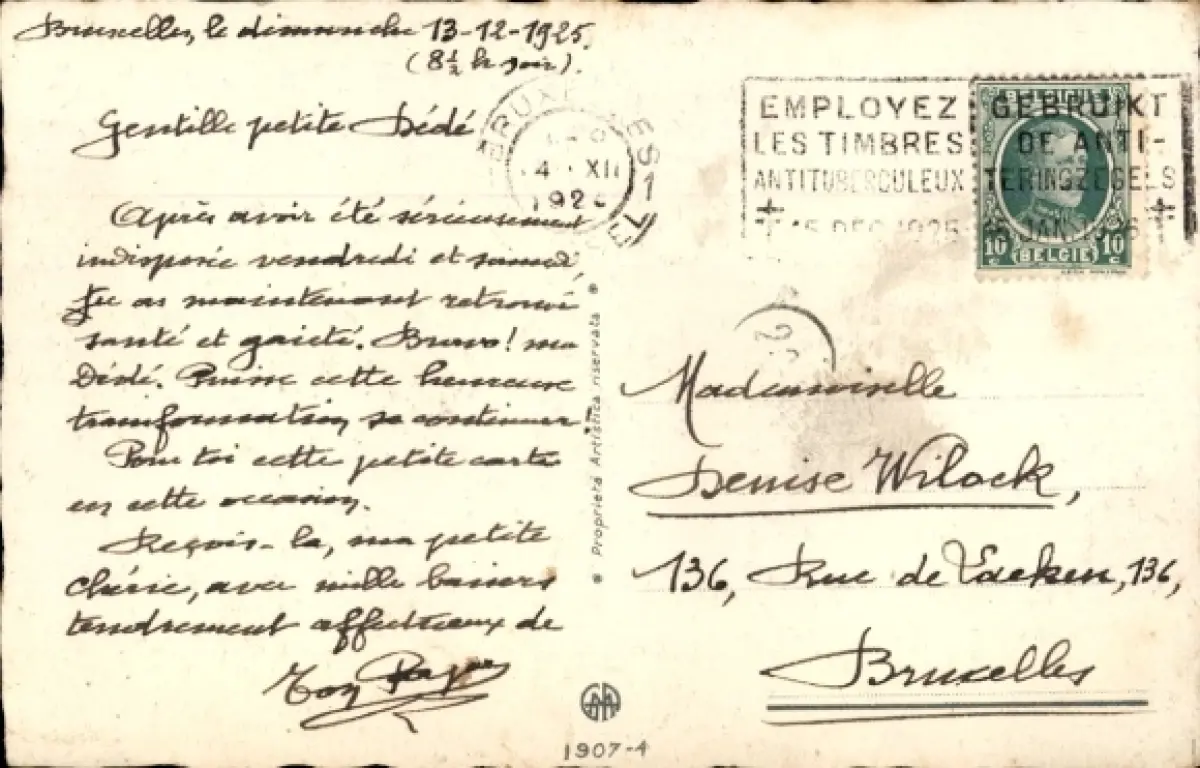 Bruxelles, le dimanche 13-12-1925.
(8½ h soir).
Gentille petite Dédé
Après avoir été sérieusement
indisposée vendredi et samedi,
tu as maintenant retrouvé
santé et gaieté. Bravo! ma
Dédé. Puisse cette heureuse
transformation se continuer!
Pour toi cette petite carte
en cette occasion.
Reçois-la, ma petite
chérie, avec mille baisers
tendrement affectueux de
Ton
BRUXELLES 1
4 XII
192
EMPLOYEZ
LES TIMBRES
ANTITUBERCULEUX
15 DEC 1925
GEBRUIKT
DE ANTI-
TERINGZEGELS
JAN
BELGIQUE
10 c BELGIË 10 c
Mademoiselle
Denise Wilock,
136, Rue de Laeken, 136,
Bruxelles
Proprietà Artistica riservata
1907-4